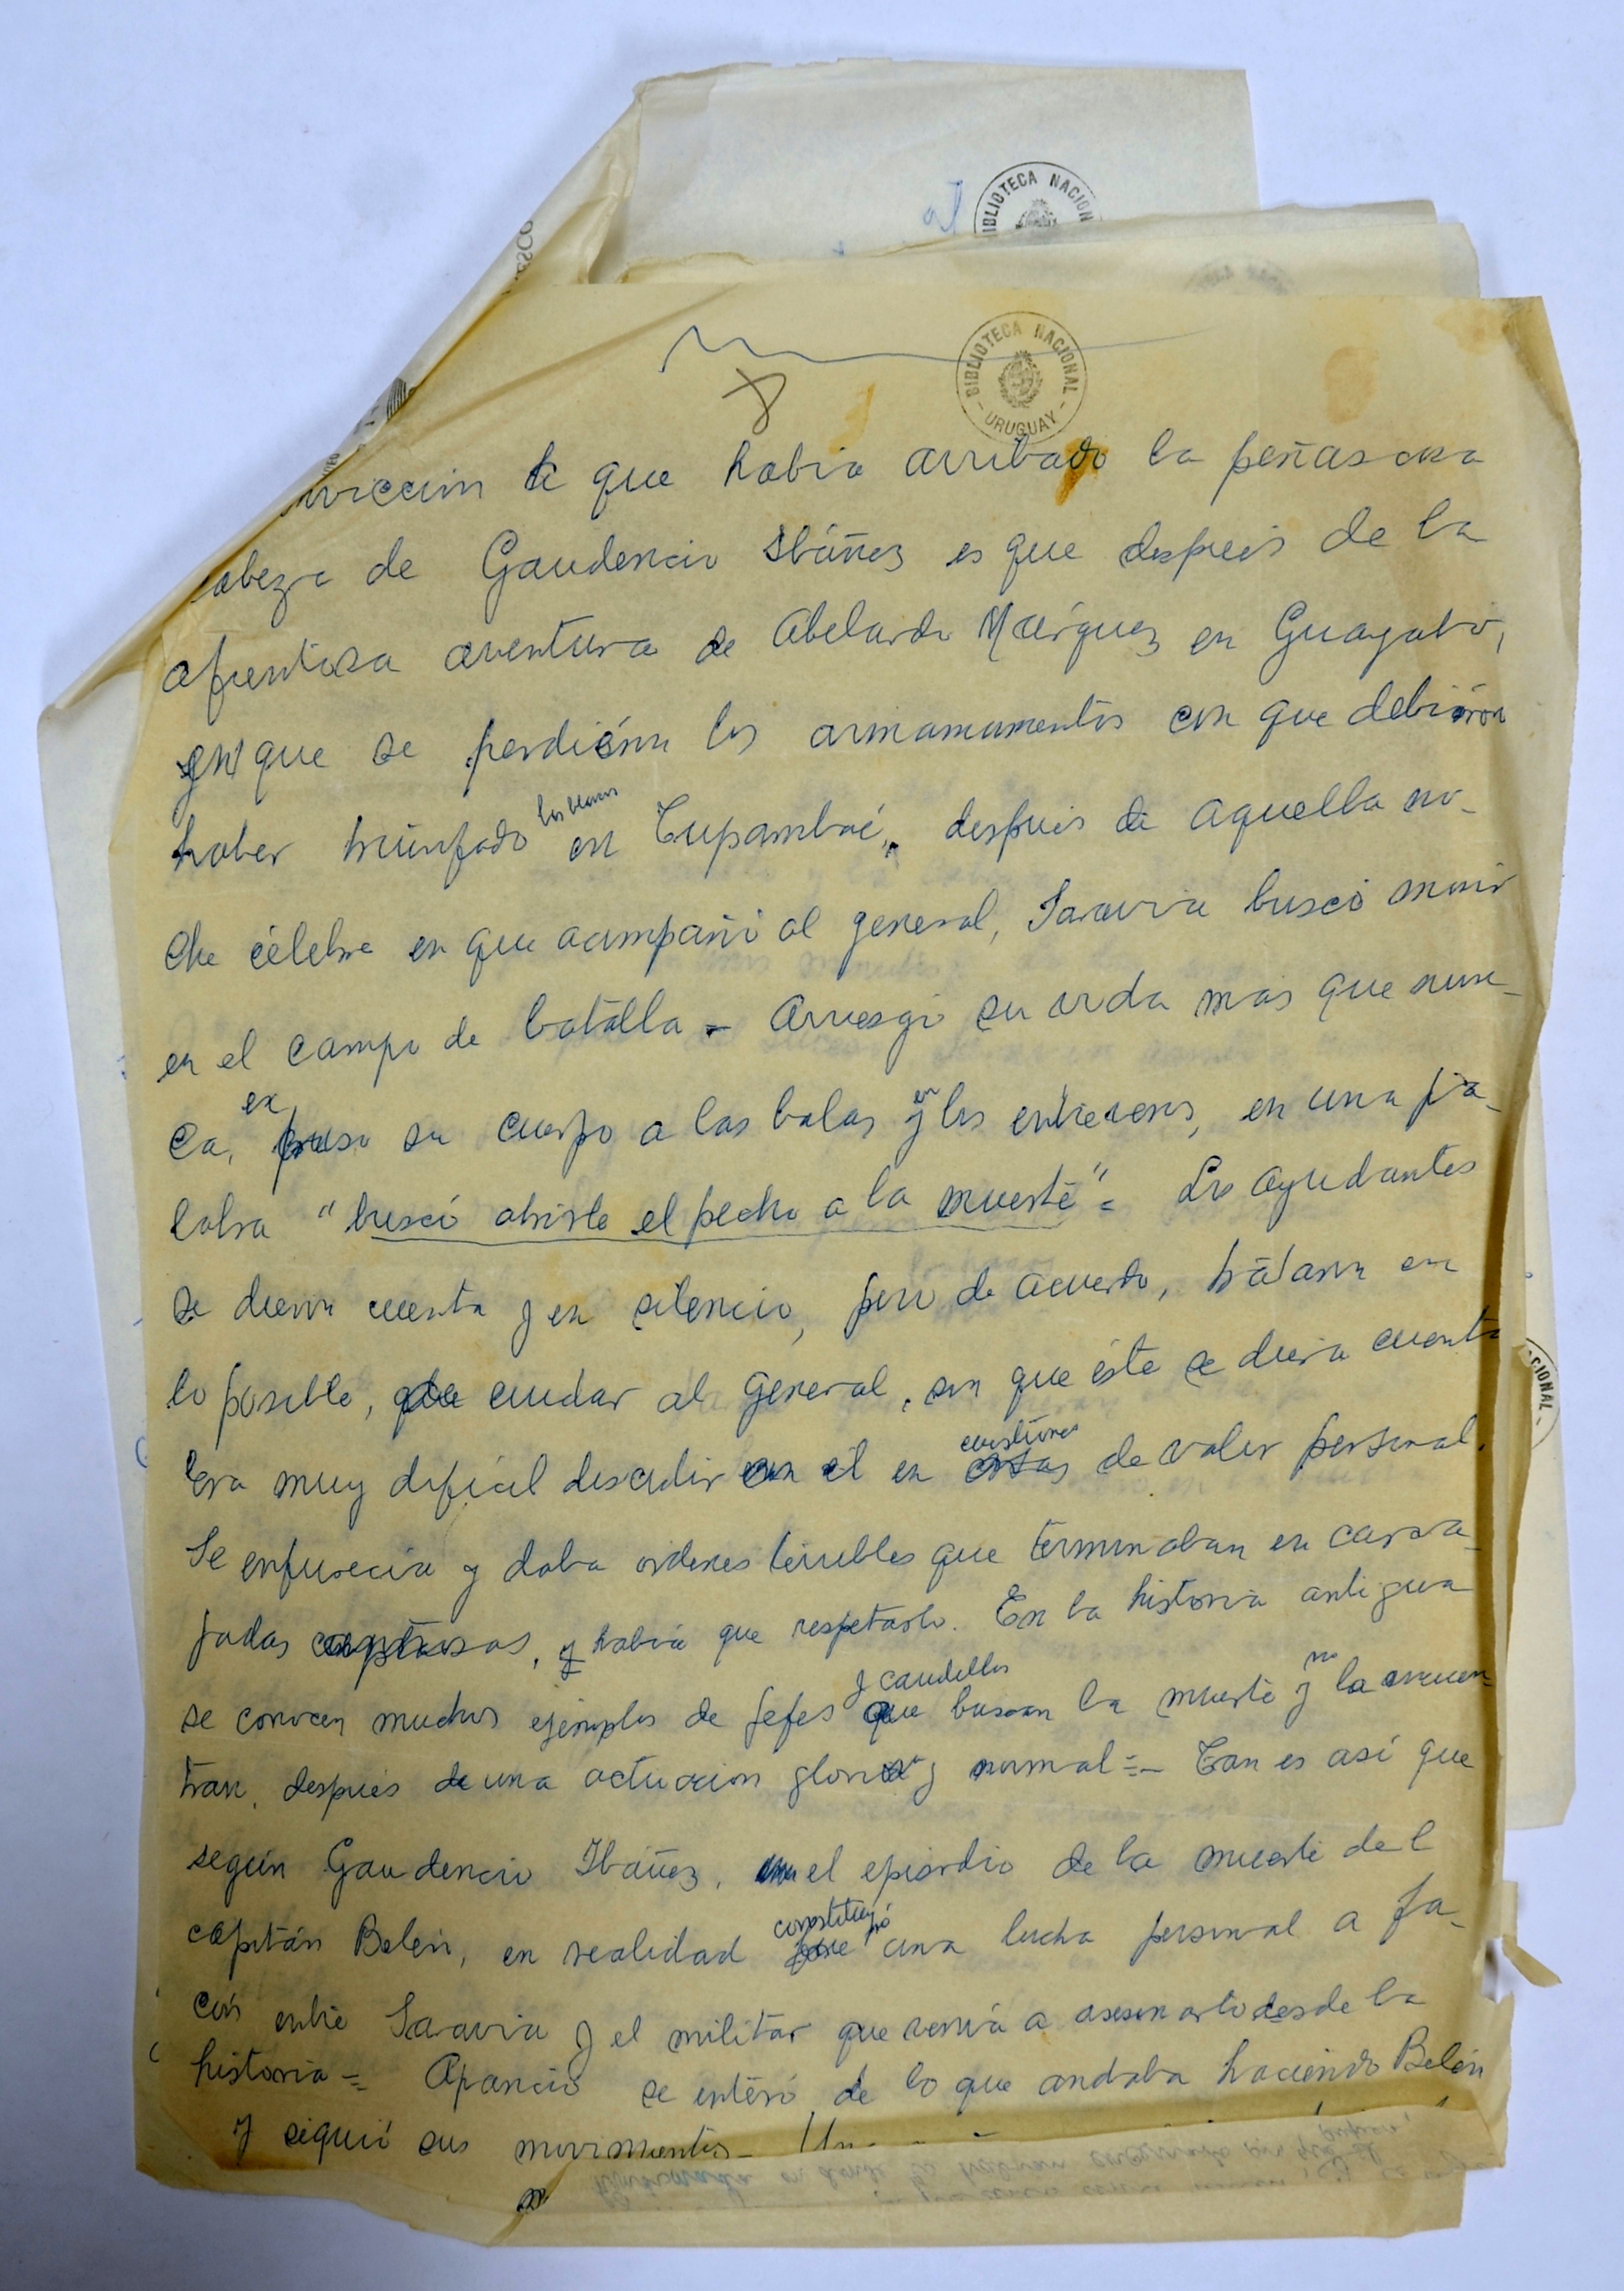 al
BIBLIOTECA NACION
BIBLIOTECA NACIONAL
- URUGUAY -
8
nvicción de que había arribado la peñascosa
cabeza de Gaudencio Ibáñez es que después de la
afrentosa aventura de Abelardo Márquez en Guayabo,
en que se perdieron los armamamentos con que debieron
haber triunfado los blancos en Tupambaé, después de aquella no-
che célebre en que acampañó al general, Saravia buscó morir
en el campo de batalla - Arriesgó su vida más que nun-
ca, expuso su cuerpo a las balas y en los entreveros, en una pa-
labra "buscó abrirle el pecho a la muerte" = Los ayudantes
se dieron cuenta y en silencio, pero de acuerdo, trataron en
lo posible, de cuidar al General, sin que éste se diera cuenta
Era muy difícil discutir con él en cuestiones de valor personal.
Se enfurecía y daba ordenes terribles que terminaban en carca-
jadas, y había que respetarlo. En la historia antigua
se conocen muchos ejemplos de jefes y caudillos que buscan la muerte y no la encuen-
tran, después de una actuación gloriosa y normal = - Tan es así que
según Gaudencio Ibáñez, el episodio de la muerte del
capitán Belén, en realidad constituyó una lucha personal a fa-
cón entre Saravia y el militar que venía a asesinarlo desde la
historia = Aparicio se enteró de lo que andaba haciendo Belén
y siguió sus movimientos - Un
CIONAL -